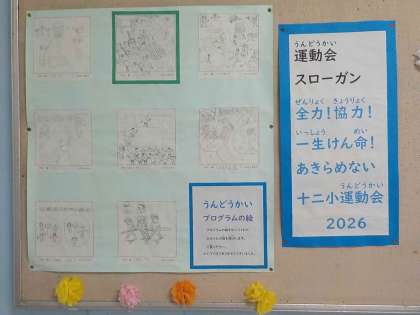 うんどうかい
運動会
スローガン
ぜんりょく きょうりょく
全力!協力!
いっしょう めい
一生けん命!
あきらめない
うんどうかい
十二小運動会
2026
うんどうかい
プログラムの絵